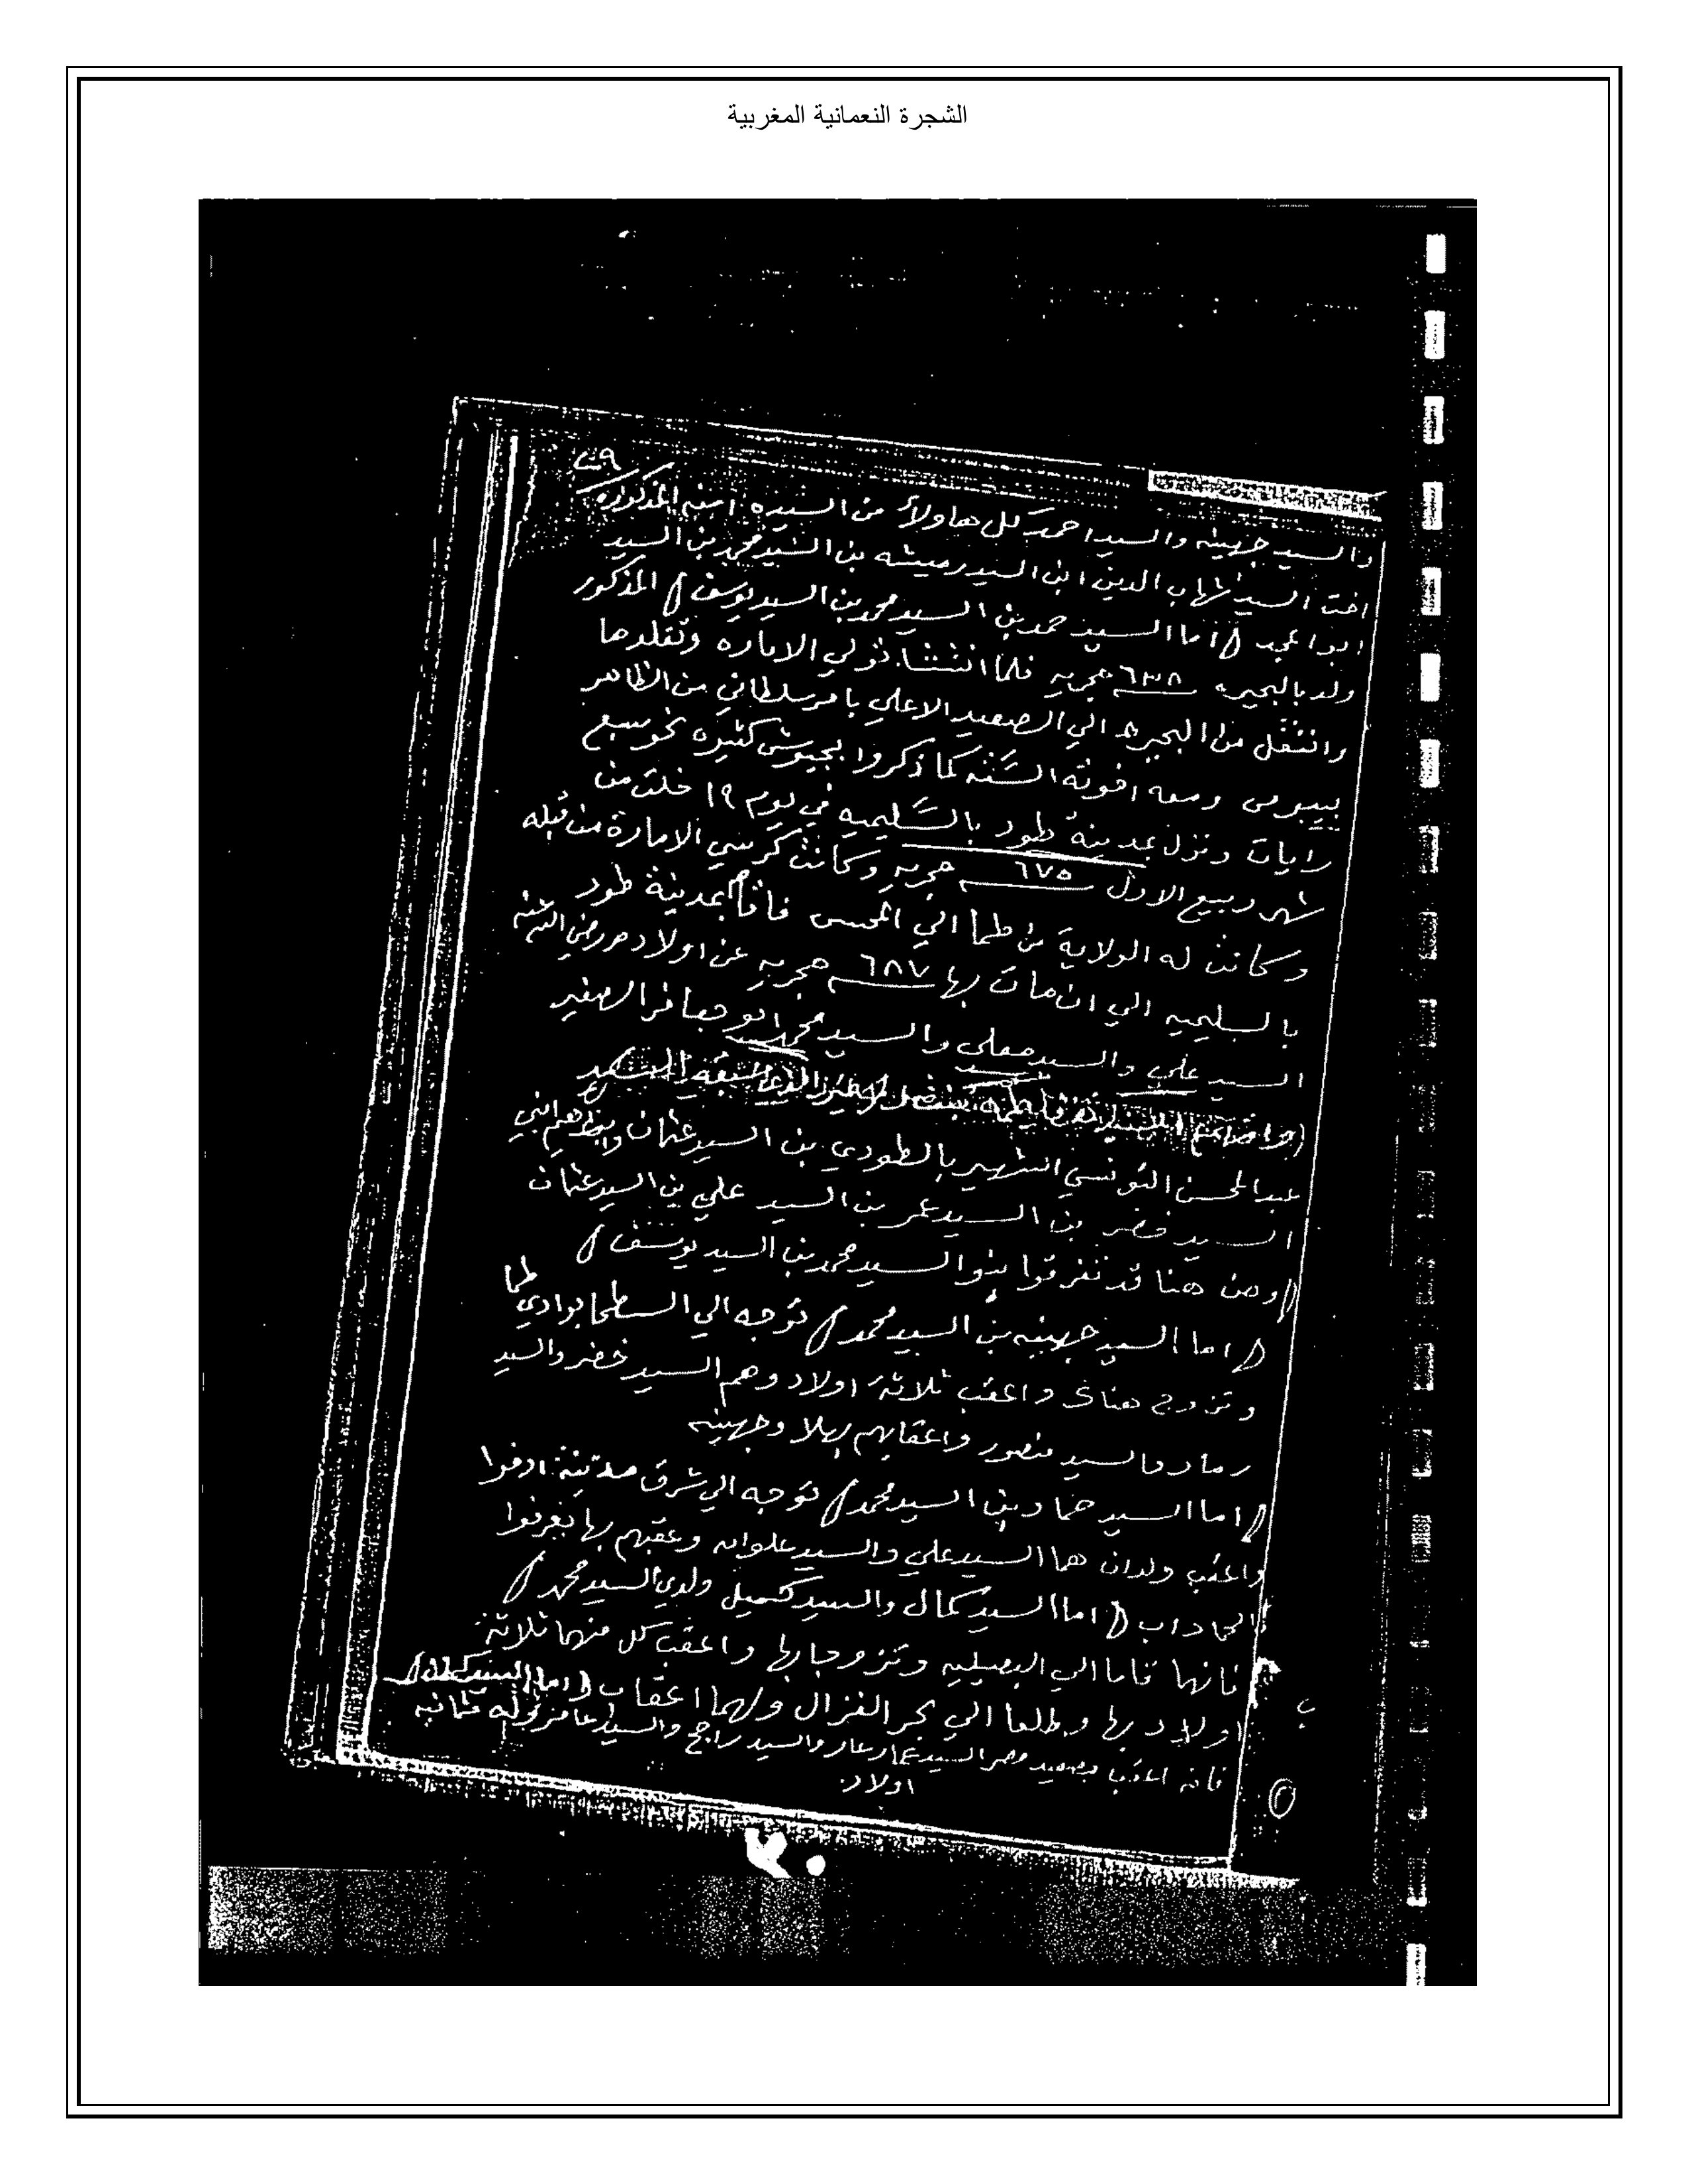 الشجرة النعمانية المغربية
والسيد جهينه والسيد احمد كل هاولاء من السيده امنه المذكوره
اخت السيد شهاب الدين ابن السيد رميثه بن السيد محمد بن السيد
ابوا اما السيد حمد بن السيد محمد بن السيد يوسف المذكور
ولد بالبحيره ٦٣٨ هجريه فلما انتشا تولي الاماره وتقلدها
وانتقل من البحيره الي الصعيد الاعلي بامر سلطاني من الظاهر
بيبرس ومعه اخوته الستته كما ذكروا بجيوش كثيره نحو سبع
رايات ونزل بمدينة طود بالسليميه في يوم ١٩ خلت من
شهر ربيع الاول ٦٧٥ هجريه وكانت كرسي الامارة من قبله
وكانت له الولاية من طما الي فاقام بمدينة طود
بالسليميه الي ان مات بها ٦٨٧ هجريه عن اولاده رضي الله عنه
السيد علي والسيد معلي والسيد محمد ابو جعافر الصغير
عبد المحسن التونسي الشهير بالطودي بن السيد عثمان
السيد خضر بن السيد عمر بن السيد علي بن السيد عثمان
ومن هنا قد تفرقوا بنوا السيد محمد بن السيد يوسف
اما السيد جهينه بن السيد محمد توجه الي السطحا بوادي طما
وتزوج هناك واعقب ثلاثة اولاد وهم السيد خضر والسيد
رماد والسيد منصور واعقابهم بهلا وجهينه
اما السيد حماد بن السيد محمد توجه الي شرق مدينة ادفوا
واعقب ولدان هما السيد علي والسيد علوان وعقبهم بها يعرفوا
اما السيد كمال والسيد كميل ولدي السيد محمد
فانها قاما الي البصيليه وتزوجا بها واعقب كل منهما ثلاثة
اولاد بها وطلعا الي بحر الغزال ولهما اعقاب اما السيد
فانه اعقب بصعيد مصر السيد عمار والسيد راجح والسيد عامر وله ثمانيه
اولاد